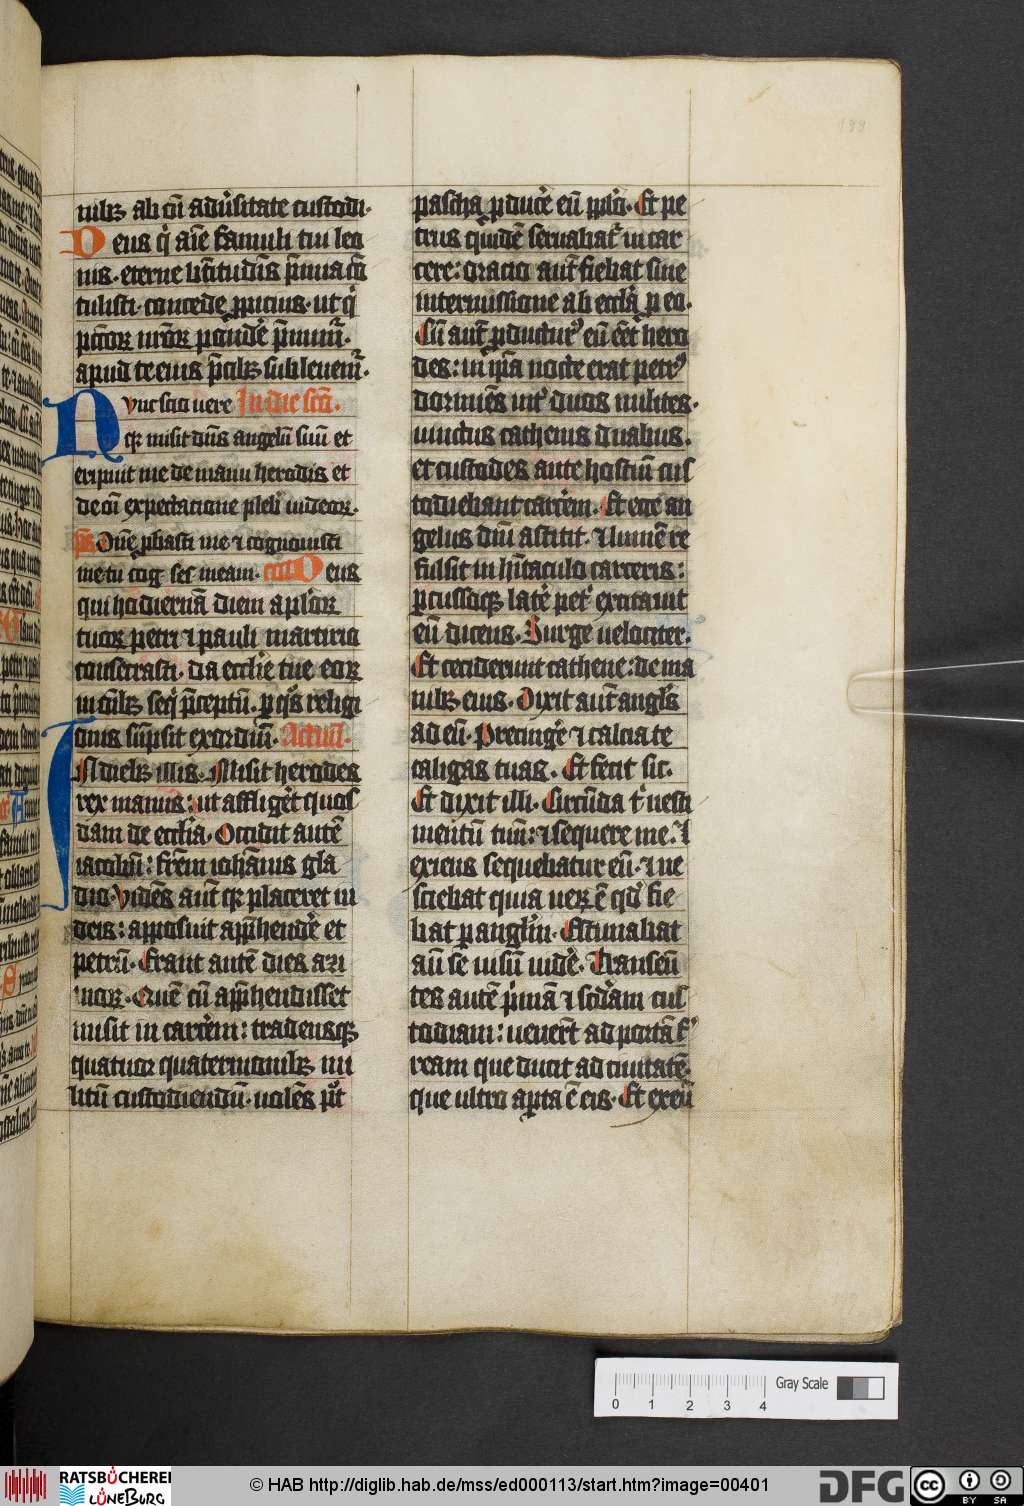 199
nibꝫ ab oı̄ adu̾sitate custodi·
Deus qͥ aı̄e famuli tui leo
nis· eterne bt̄itudı̄s p̄mia cō
tulisti· concede ꝓpicius· ut qͥ
pctōꝝ nr̄oꝝ ponde̾ p̄mimur̄·
apud te eius p̄cibꝫ subleuem̄·
Nunc scio uere In die scā·
qꝛ misit dn̄s angelū suū et
eripuit me de manu herodis et
de oı̄ expectatione plebi̾ iudeoꝝ·
p̄s Dn̄e ꝓbasti me ⁊ cognouisti
me tu cōg̾ ses̾ meam· coll̄ Deus
qui hodiernā diem aplo̾ꝝ
tuoꝝ petri ⁊ pauli martirio
consecrasti· da eccl̾ie tue eoꝝ
in oı̄bꝫ seqi̾ p̄ceptū· ꝑ qͦs religi
onis sūpsit exordiū· Actuū·
IN diebꝫ illis· Misit herodes
rex manus: ut affligēt quos
dam de eccl̾ia· Occidit autē
iacobū: fr̄em iohānis gla
dio· Vidēs aūt qꝛ placeret iu
deis: apposuit app̄hende̾ et
petrū· Erant autē dies azi
moꝝ· Quē cū app̄hendisset
misit in carce̾m: tradensqꝫ
quatuor quaternionibꝫ mi
litū custodiendū· uolēs pͦt
pascha ꝓduce̾ eū pplo̾· Et pe
trus quidē seruabat̾ in car
cere: oracio aūt fiebat sine
intermissione ab eccl̾a ꝓ eo·
Cū aūt ꝓducturꝰ eū eēt hero
des: in ip̄a nocte erat petrꝰ
dormiēs int̾ duos milites·
uinctus cathenis duabus·
et custodes ante hostiū cus
todiebant carce̾m· Et ecce an
gelus dn̄i astitit· ⁊ lumē re
fulsit in hı̄taculo carceris:
ꝑcussoqꝫ late̾ pet̾ excitauit
eū dicens· Surge uelociter·
Et ceciderunt cathene: de ma
nibꝫ eius· Dixit aūt angl̾s
ad eū· Precinge̾ ⁊ calcia te
caligas tuas· Et fecit sic·
Et dixit illi· Circūda t̾ uesti
mentū tuū: ⁊ sequere me· ⁊
exiens sequebatur eū· ⁊ ne
sciebat quia ueꝝ ē qd̾ fie
bat ꝑ angl̾m· Estimabat
aūt se uisū uide̾· Transeū
tes autē pͥmā ⁊ scd̾am cus
todiam: uener̄t ad portā fͤr
ream que ducit ad ciuitatē·
que ultro aꝑta ē eis· Et exeū
0 1 2 3 4
Gray Scale
RATSBÜCHEREI
LÜNEBURG
© HAB http://diglib.hab.de/mss/ed000113/start.htm?image=00401
DFG
cc BY SA